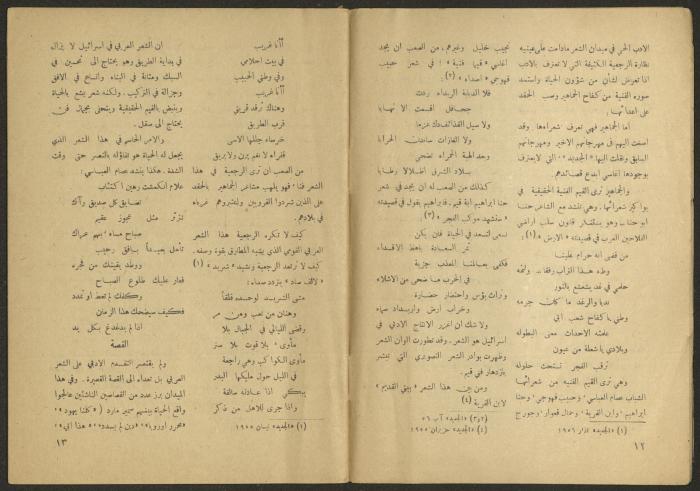 الادب الحي في ميدان الشعر مادامت على عينيه
نظارة الرجعية الكثيفة التي لا تعترف بالادب
اذا تعرض لشأن من شؤون الحياة واستمد
صوره الفنية من كفاح الجماهير وصب الحقد
على اعدائها.
اما الجماهير فهي تعرف شعراءها. وقد
اصغت اليهم في مهرجانهم الاخير ومهرجانهم
السابق ونقلت اليها «الجديد» التي لايعترف
بوجودها اغاسي ابدع قصائدهم.
والجماهير ترى القيم الفنية الحقيقية في
بواكير شعرائها. وهي تنشد مع الشاعر حنا
ابو حنا، وهو يستنكر قانون سلب اراضي
الفلاحين العرب في قصيدته «الارض» (١).
من قفى انه حرام علينا
وطء هذا التراب رفقا
حلمي في غد يشعشع بالنور
نديا والرغد ما كان جرمه
وطني يا كفاح شعب ابي
علمته الاحداث معنى البطوله
وبلادي يا شعلة من عيون
ترقب الفجر تستحث حلوله
وهي ترى القيم الفنية من شعرائها
الشباب عصام العباسي، وحبيب قهوجي، وحنا
ابراهيم، وابن القرية، وجمال قعوار، وجورج
(١) «الجديد» اذار ١٩٥٦
١٢
نجيب خليل وغيرهم. من الصعب ان يجد
اغاسي «قيما فنية»! في شعر حبيب
قهوجي «اصداء» (٢).
فلا الدبابة الربداء ردتك
جحافل اقسمت الا نهايا
ولا سيل القذائف دك عزما
ولا الغازات سادات الحرايا
وحد الهبة الحمراء تضحي
بلاد الشرق اطلالا وطنايا
كذلك من الصعب له ان يجد في شعر
حنا ابراهيم اية قيم. فابراهيم يقول في قصيدته
«ستشهد موكب الفجر» (٣).
نسعى لنسعد في الحياة فلن يكن
ثمر السعادة باهظ الاقساء
فكفى بعالمنا المعذب جزية
في الحرب ما ضحى من الاشلاء
وتراث بؤس واحتضار حضارة
وخراب ارض واربداد سماء
ولا شك ان اغزر الانتاج الادبي في
اسرائيل هو الشعر. وقد تطورت الوان الشعر
وظهرت بوادر الشعر التصويري التي تبشر
بازدهار في قيم.
ومن بين هذا الشعر «بيتي القديم»
لابن القرية (٤)
(٢و٣) «الجديد» آب ٥٦
(٤) «الجديد» حزيران ١٩٥٥
أأنا غريب
في بيت احلامي
وفي وطني الحبيب
أأنا غريب
وهناك ترقد قريتي
قرب الطريق
خرساء جللها الاسى
قفراء لا نغم يرن ولا بريق
من الصعب ان ترى الرجعية في هذا
الشعر فنا! فهو يلهب مشاعر الجماهير بالحقد
على الذين شردوا القرويين وليشردوهم غرباء
في بلادهم.
كيف لا تكره الرجعية هذا الشعر
العربي القومي الذي يشبه المطارق بقوة وصفه.
كيف لا ترتعد الرجعية ونشيد «شريد» (١)
«لالف صاد» يتردد صداه:
متى الشريد لوحده قلقاً
وهنان من تعب ومن
وقضى الليالي في الجبال بلا
مأوى، بلا قوت بلا ستر
مأوى الكواكب وهي راجعة
في الليل حول مليكها البدر
يبكي اذا عادته سالفة
واذا جرى للاهل من ذكر
(١) «الجديد» نيسان ١٩٥٥
ان الشعر العربي في اسرائيل لا يزال
في بداية الطريق وهو يحتاج الى تحسين في
السبك ومتانة في البناء واتساع في الافق
وجزالة في التركيب. ولكنه شعر يشع بالحياة
وينبض بالقيم الحقيقية ويتحلى بجمال فني
يحتاج الى صقل.
والامر الحاسم في هذا الشعر الذي
يجعل له الحياة هو تفاؤله بالنصر حتى وقت
الشدة. هكذا ينشد عصام العباسي:
علام انكمشت رهين اكتئاب
تضايق كل صديق رآك
تزثر مثل عجوز عقيم
صباح مساء؛ بنهم عراك
تأمل بعيداً بافق رحيب
ووطد يقينك من فجره
فعار عليك طلوع الصباح
وكفك لم تعط او تمدد
فكيف سيضحك هذا الزمان
اذا لم يدغدغ بكل يد
القصة
ولم يقتصر التقدم الادبي على الشعر
العربي بل تعداه الى القصة القصيرة. وفي هذا
الميدان برز عدد من القصاصين الناشئين عالجوا
واقع الحياة بينهم سمير مارد («كلنا يهود»،
«محرر اوروبا»، «دين لم يسدد»، «هذا أبي»،
١٣